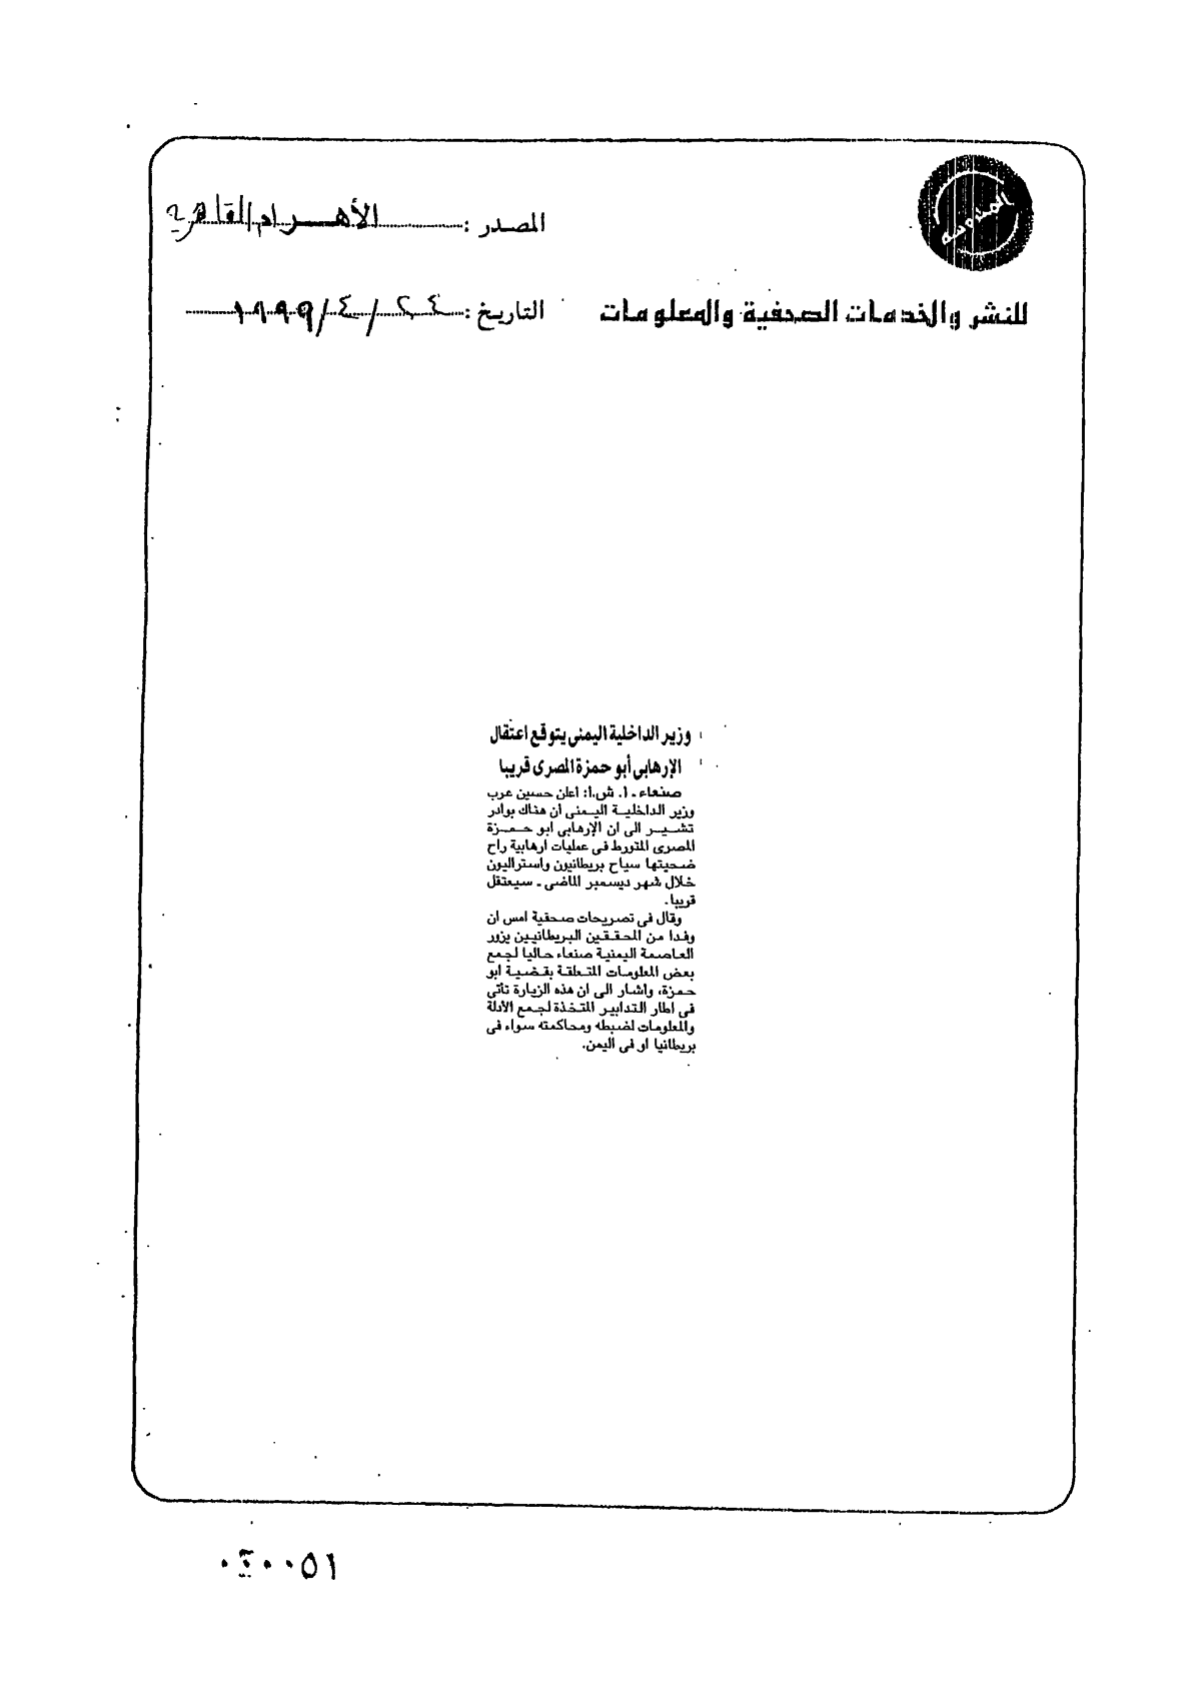 المحروسة
المصدر : الأهرام القاهرية
للنشر والخدمات الصحفية والمعلومات
التاريخ : ٢٤ / ٤ / ١٩٩٩
وزير الداخلية اليمنى يتوقع اعتقال
الإرهابى أبو حمزة المصرى قريبا
صنعاء ـ أ. ش.ا: اعلن حسين عرب
وزير الداخلية اليمنى ان هناك بوادر
تشير الى ان الإرهابى ابو حمزة
المصرى المتورط فى عمليات ارهابية راح
ضحيتها سياح بريطانيون واستراليون
خلال شهر ديسمبر الماضى ـ سيعتقل
قريبا.
وقال فى تصريحات صحفية امس ان
وفدا من المحققين البريطانيين يزور
العاصمة اليمنية صنعاء حاليا لجمع
بعض المعلومات المتعلقة بقضية ابو
حمزة، واشار الى ان هذه الزيارة تأتى
فى اطار التدابير المتخذة لجمع الأدلة
والمعلومات لضبطه ومحاكمته سواء فى
بريطانيا او فى اليمن.